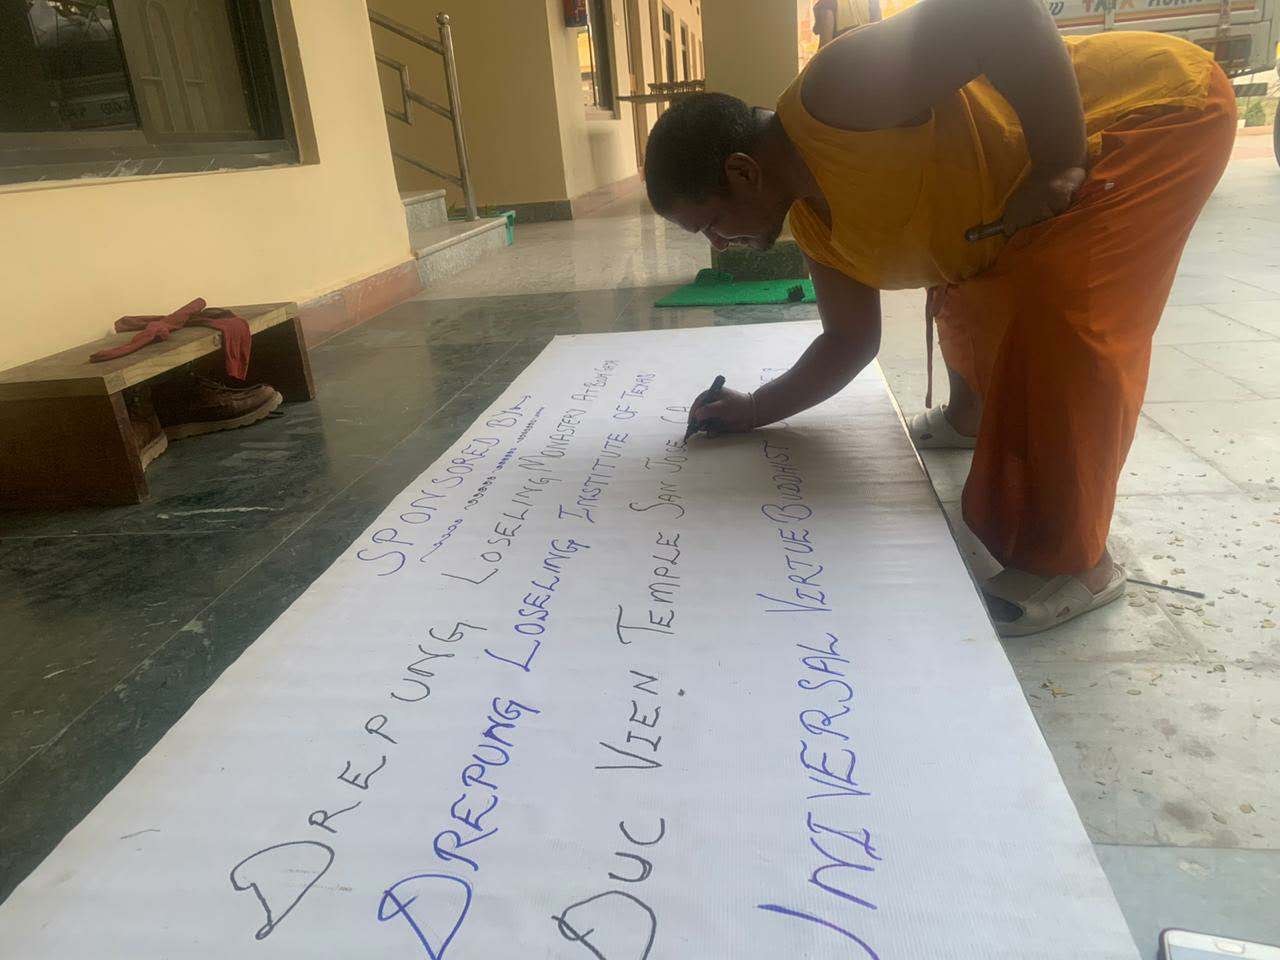 SPONSORED BY:
DREPUNG LOSELING MONASTERY ATLANTA
DREPUNG LOSELING INSTITUTE OF TEXAS
DUC VIEN TEMPLE SAN JOSE CA
UNIVERSAL VIRTUE BUDDHIST
TATA